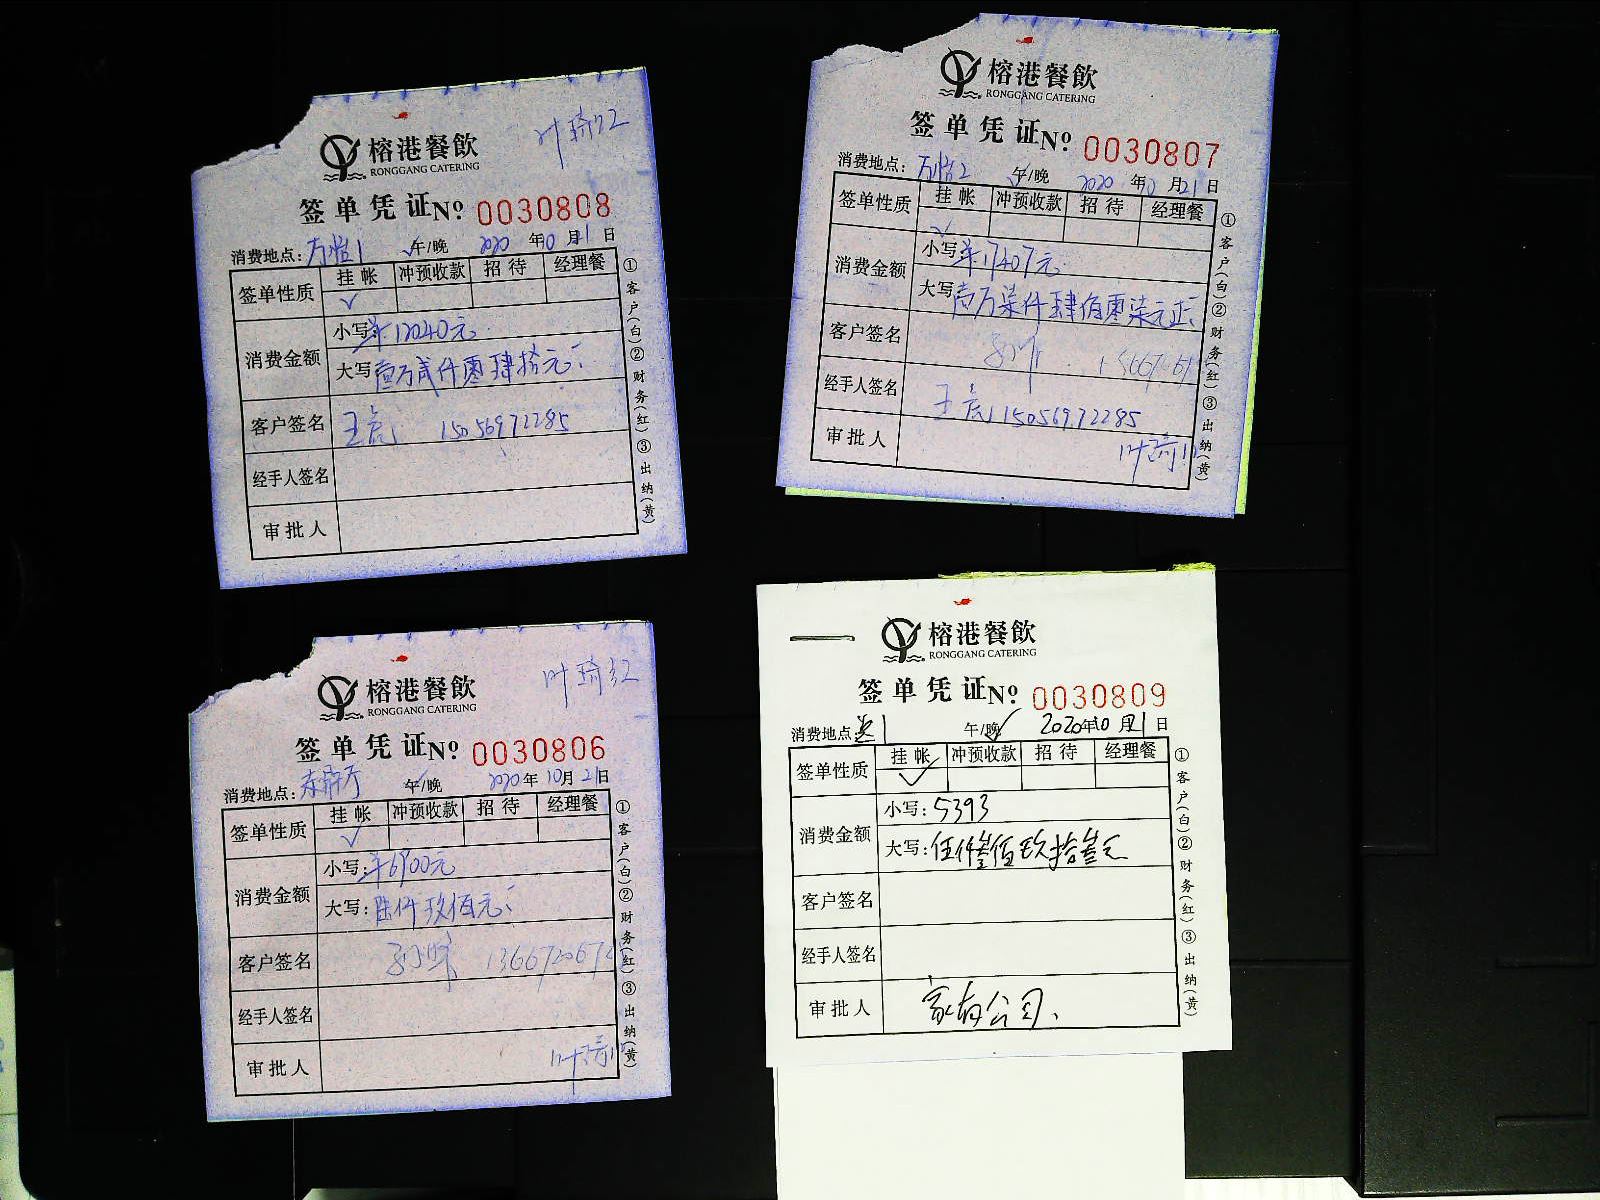 叶琦红
榕港餐飲
RONGGANG CATERING
签单凭证No 0030808
消费地点: 午/晚 2020 年10月21日
签单性质 挂帐 冲预收款 招待 经理餐
✓
消费金额 小写: ¥12040元
大写: 壹万贰仟零肆拾元
客户签名 15056972285
经手人签名
审批人
①客户(白)②财务(红)③出纳(黄)
榕港餐飲
RONGGANG CATERING
签单凭证No 0030807
消费地点: 午/晚 2020 年10月21日
签单性质 挂帐 冲预收款 招待 经理餐
✓
消费金额 小写: ¥17407元
大写: 壹万柒仟肆佰零柒元正
客户签名
经手人签名 15056972285
审批人 叶琦红
①客户(白)②财务(红)③出纳(黄)
叶琦红
榕港餐飲
RONGGANG CATERING
签单凭证No 0030806
消费地点: 午/晚 2020年10月21日
签单性质 挂帐 冲预收款 招待 经理餐
✓
消费金额 小写: ¥6900元
大写: 陆仟玖佰元
客户签名
经手人签名
审批人 叶琦红
①客户(白)②财务(红)③出纳(黄)
榕港餐飲
RONGGANG CATERING
签单凭证No 0030809
消费地点: 午/晚 2020年10月21日
签单性质 挂帐 冲预收款 招待 经理餐
✓
消费金额 小写: 5393
大写: 伍仟叁佰玖拾叁元
客户签名
经手人签名
审批人 家有公司、
①客户(白)②财务(红)③出纳(黄)